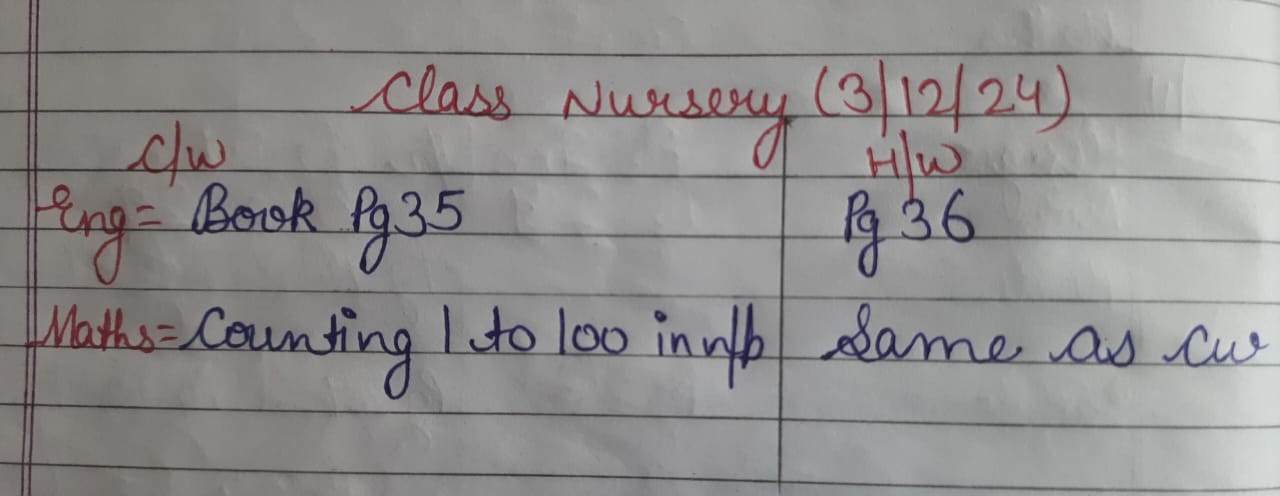 Class Nursery (3/12/24)
C/W H/W
Eng = Book Pg 35 Pg 36
Maths = Counting 1 to 100 in n/b Same as cw